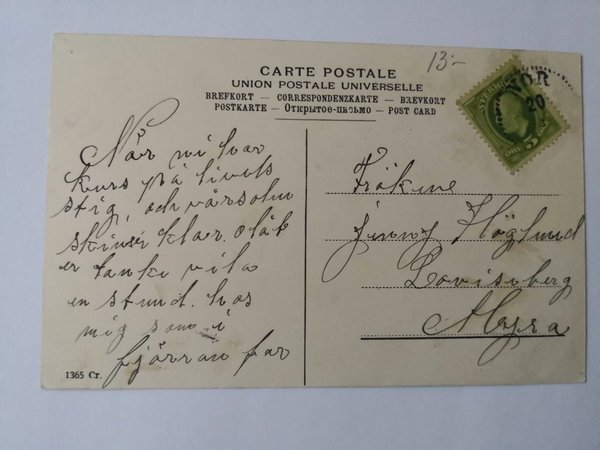 13:-
CARTE POSTALE
UNION POSTALE UNIVERSELLE
BREFKORT – CORRESPONDENZKARTE – BREVKORT
POSTKARTE – Открытое-письмо – POST CARD
NOR
20
SVERIGE
5
När ni har
kurs på livets
stig, och vårsolen
skiner klar. O låt
er tanke vila
en stund. hos
mig som i
fjärran far
Fröken
Jinny Höglund
Lovisaberg
Myra
1365 Cr.